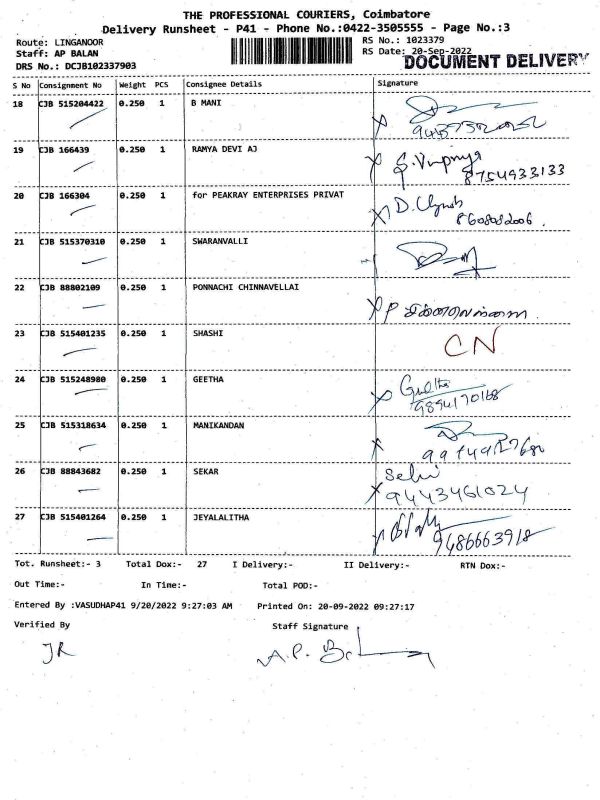 THE PROFESSIONAL COURIERS, Coimbatore
Delivery Runsheet - P41 - Phone No.:0422-3505555 - Page No.:3
Route: LINGANOOR
RS No.: 1023379
Staff: AP BALAN
RS Date: 20-Sep-2022
DRS No.: DCJB102337903
DOCUMENT DELIVERY
S No Consignment No Weight PCS Consignee Details Signature
18 CJB 515204422 0.250 1 B MANI
19 CJB 166439 0.250 1 RAMYA DEVI AJ
8754933133
20 CJB 166304 0.250 1 for PEAKRAY ENTERPRISES PRIVAT
8608082006.
21 CJB 515370310 0.250 1 SWARANVALLI
22 CJB 88802109 0.250 1 PONNACHI CHINNAVELLAI
23 CJB 515401235 0.250 1 SHASHI CN
24 CJB 515248980 0.250 1 GEETHA
9894170168
25 CJB 515318634 0.250 1 MANIKANDAN
26 CJB 88843682 0.250 1 SEKAR
9443461024
27 CJB 515401264 0.250 1 JEYALALITHA
9486663918
Tot. Runsheet:- 3 Total Dox:- 27 I Delivery:- II Delivery:- RTN Dox:-
Out Time:- In Time:- Total POD:-
Entered By :VASUDHAP41 9/20/2022 9:27:03 AM Printed On: 20-09-2022 09:27:17
Verified By Staff Signature
JR A.P. Bal